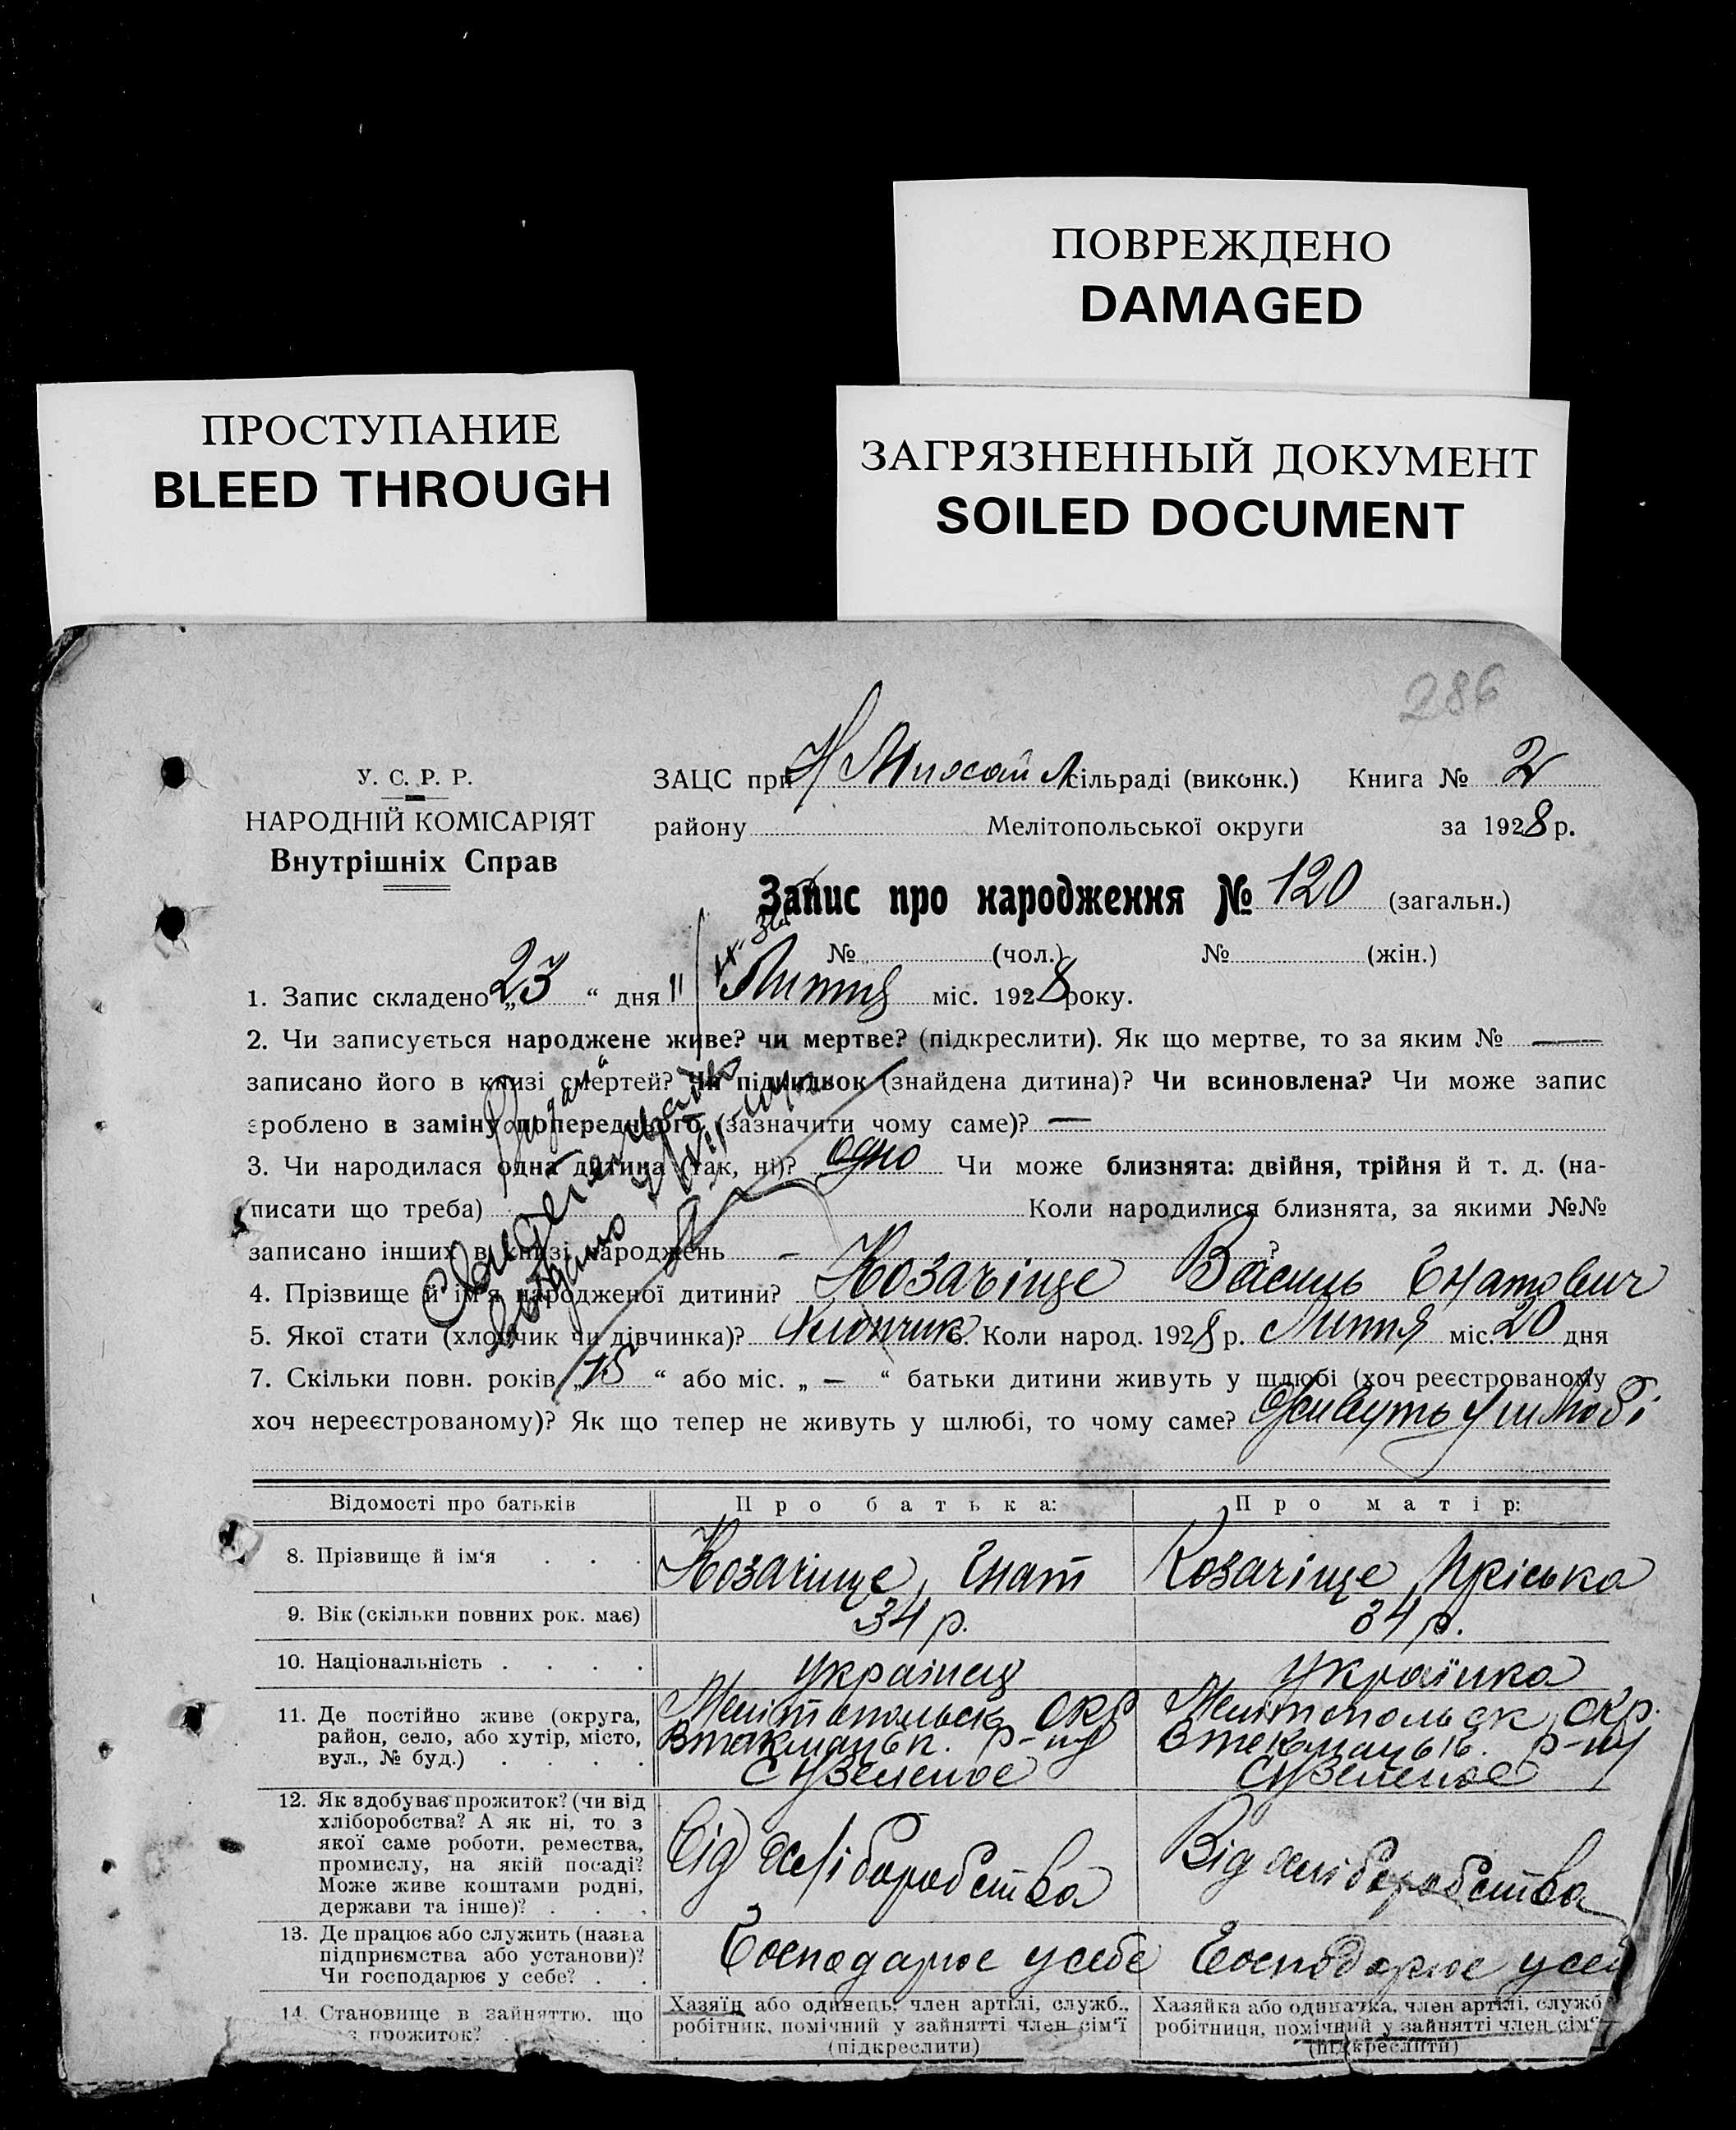 ПОВРЕЖДЕНО
DAMAGED
ПРОСТУПАНИЕ
BLEED THROUGH
ЗАГРЯЗНЕННЫЙ ДОКУМЕНТ
SOILED DOCUMENT
286
У. С. Р. Р.
НАРОДНІЙ КОМІСАРІЯТ
Внутрішніх Справ
ЗАЦС при Н сільраді (виконк.) Книга № 2
району Мелітопольської округи за 1928 р.
Запис про народження № 120 (загальн.)
№ (чол.) № (жін.)
1. Запис складено „23“ дня Липня міс. 1928 року.
2. Чи записується народжене живе? чи мертве? (підкреслити). Як що мертве, то за яким № —
записано його в книзі смертей? Чи підкидьок (знайдена дитина)? Чи всиновлена? Чи може запис
зроблено в заміну попереднього (зазначити чому саме)? —
3. Чи народилася одна дитина (так, ні)? одно Чи може близнята: двійня, трійня й т. д. (на-
писати що треба) Коли народилися близнята, за якими №№
записано інших в книзі народжень — ?
4. Прізвище й ім'я народженої дитини? Козачіще Василь Гнатович
5. Якої стати (хлопчик чи дівчинка)? Хлопчик 6. Коли народ. 1928 р. Липня міс. 20 дня
7. Скільки повн. років „15“ або міс. „—“ батьки дитини живуть у шлюбі (хоч реєстрованому
хоч нереєстрованому)? Як що тепер не живуть у шлюбі, то чому саме? живуть у шлюбі
Відомості про батьків Про батька: Про матір:
8. Прізвище й ім'я . . . Козачище, Гнат Козачіще, Пріська
9. Вік (скільки повних рок. має) 34 р. 34 р.
10. Національність . . . . українец українка
11. Де постійно живе (округа,
район, село, або хутір, місто,
вул., № буд.) . . . .
Мелітопольск окр
р-ну
Мелітопольск окр.
р-ну
12. Як здобуває прожиток? (чи від
хліборобства? А як ні, то з
якої саме роботи, ремества,
промислу, на якій посаді?
Може живе коштами родні,
держави та інше)? . . .
Від хліборобства Від хліборобства
13. Де працює або служить (назва
підприємства або установи)?
Чи господарює у себе? . .
Господарює у себе Господарює у себ
14. Становище в зайняттю, що
прожиток?
Хазяїн або одинець, член артілі, служб.,
робітник, помічний у зайнятті член сім'ї
(підкреслити)
Хазяйка або одиначка, член артілі, служб
робітниця, помічний у зайнятті член сім'
(підкреслити)
видано